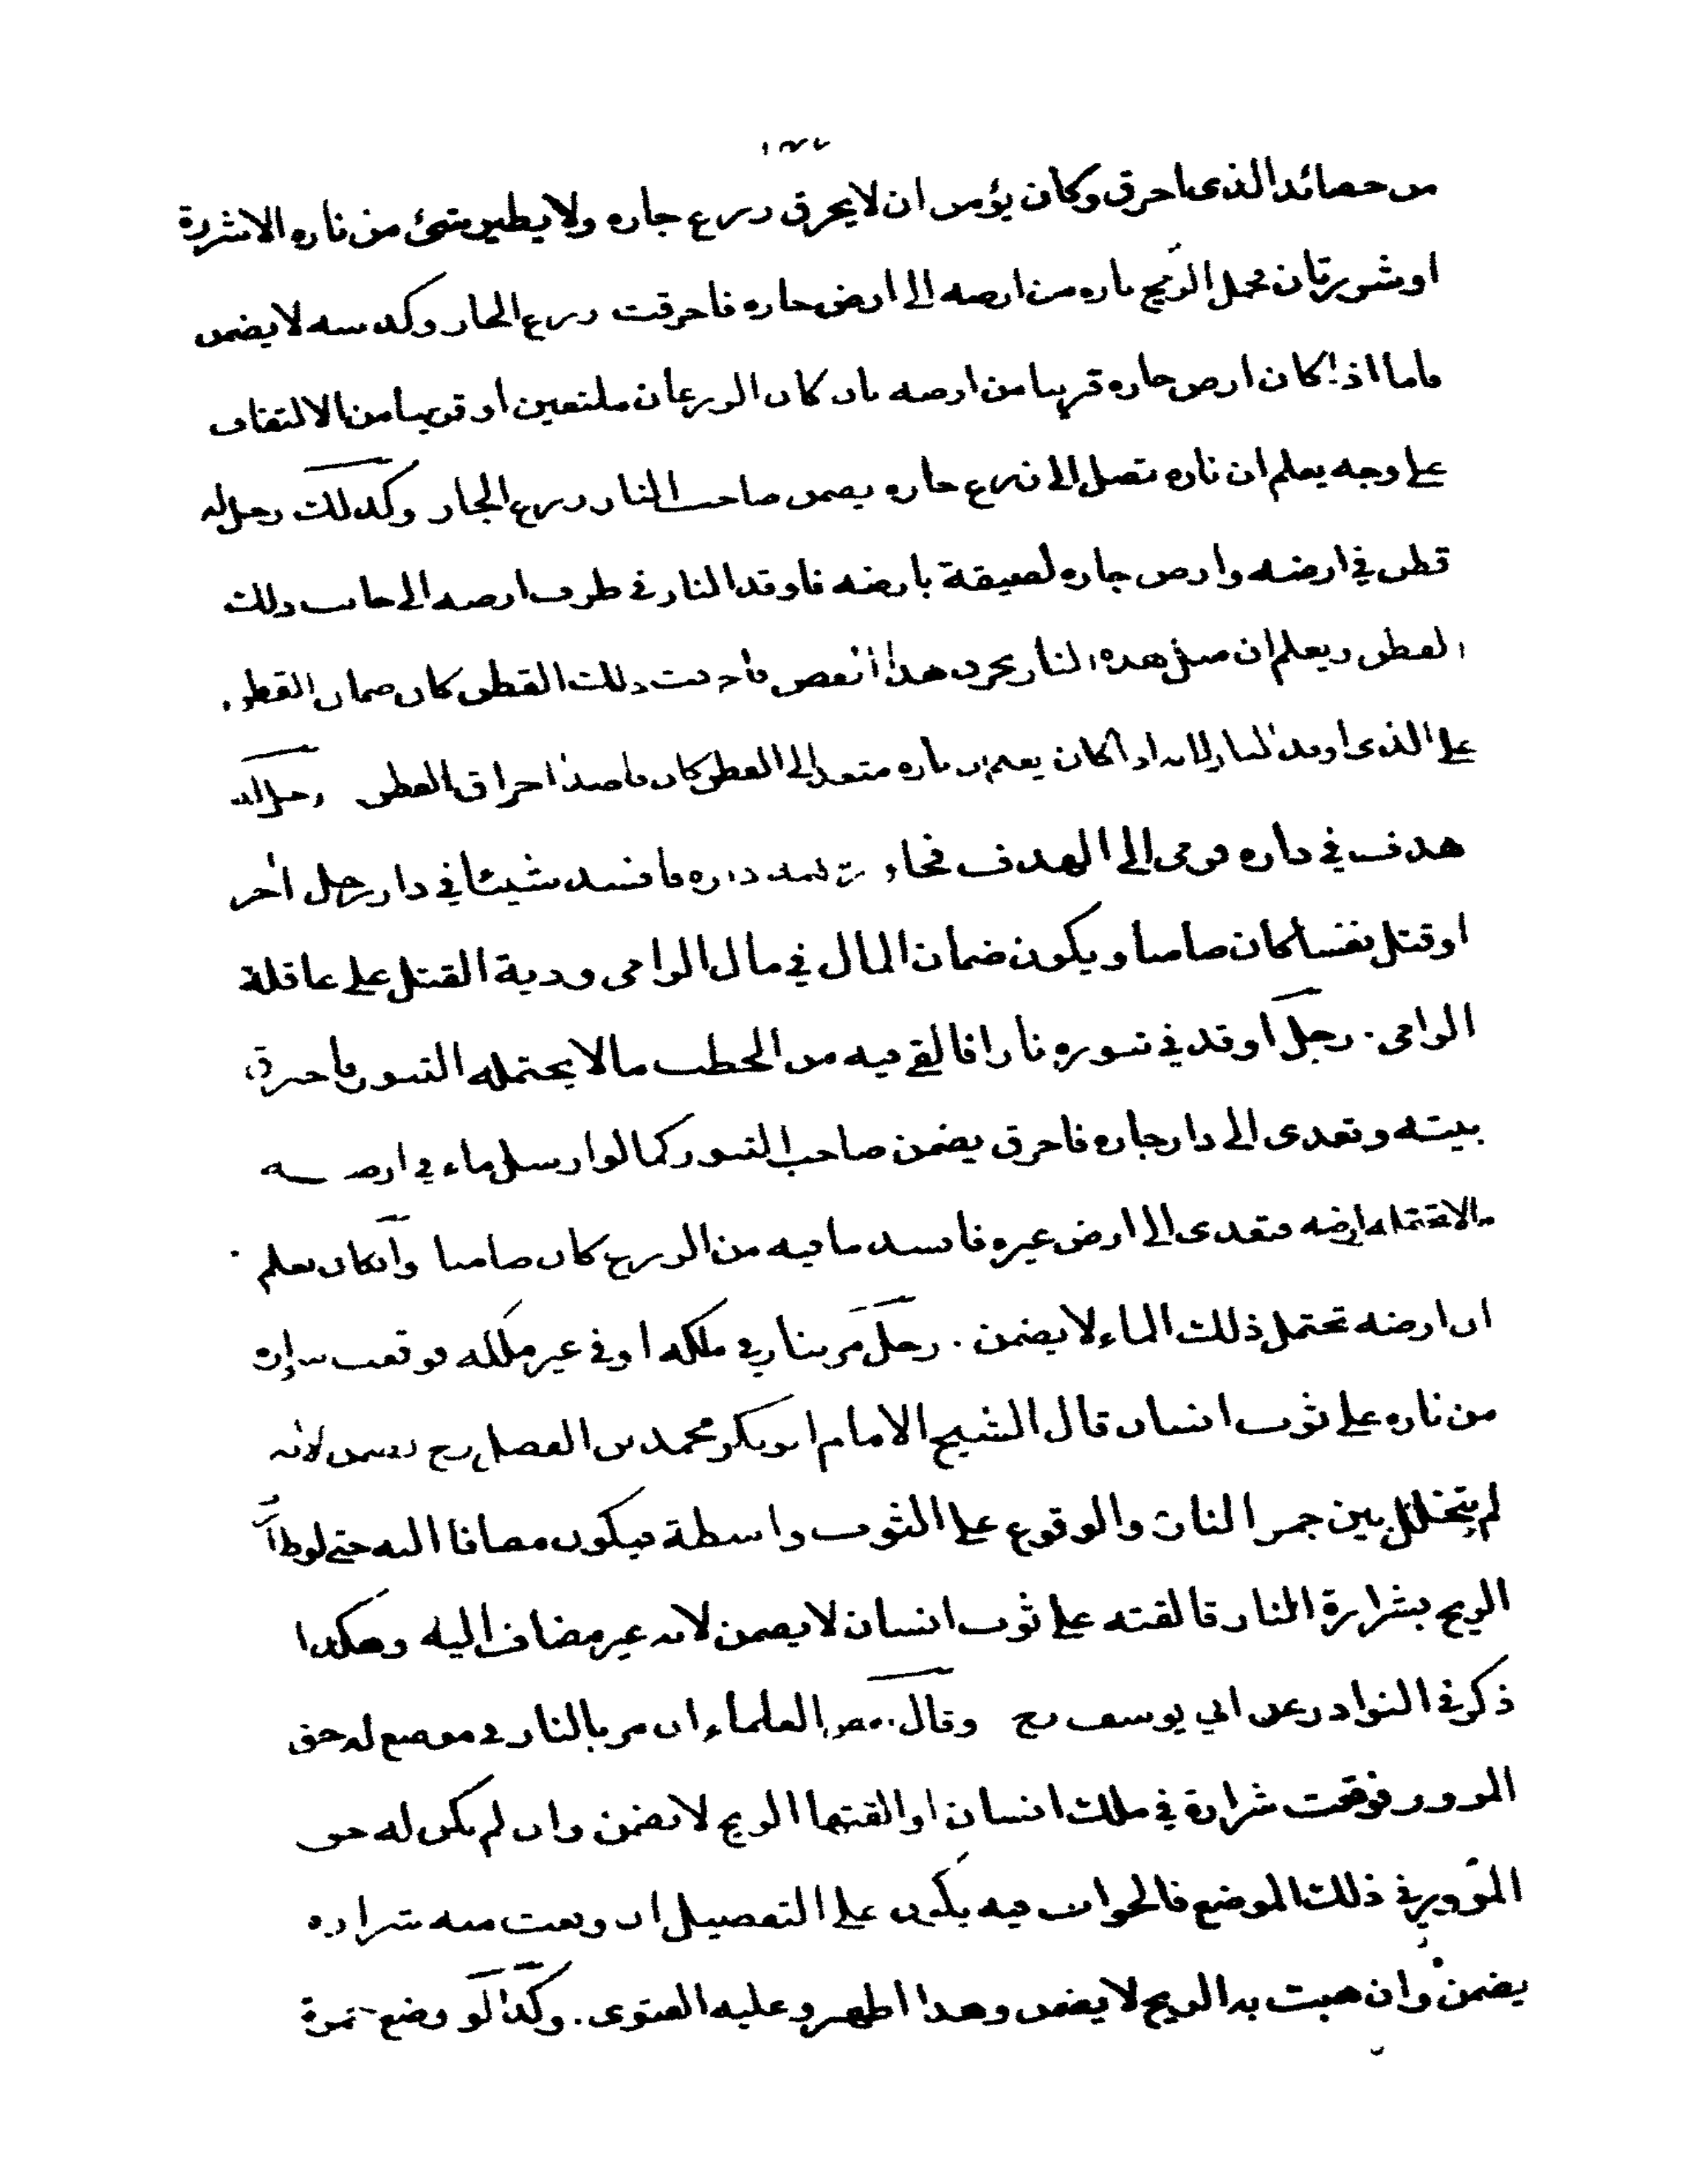 من حصائد الذي احرق وكان يؤمن ان لا يحرق زرع جاره ولا يطير شئ من ناره الا شررة
او شررتان فحمل الريح ناره من ارضه الى ارض جاره فاحرقت زرع الجار وكدسه لا يضمن
فاما اذا كان ارض جاره قريبا من ارضه بان كان الزرعان ملتفين او قريبا من الالتفاف
على وجه يعلم ان ناره تصل الى زرع جاره يضمن صاحب النار زرع الجار وكذلك رجل له
قطن في ارضه وارض جاره لصيقة بارضه فاوقد النار في طرف ارضه الى جانب ذلك
القطن ويعلم ان مثل هذه النار يحرق هذا القطن فاحرقت ذلك القطن كان ضمان القطن
على الذي اوقد النار لانه اذا كان يعلم ان ناره متعد الى القطن كان قاصدا احراق القطن رجل له
هدف في داره فرمى الى الهدف فجاوز داره فافسد شيئا في دار رجل اخر
او قتل نفسا كان ضامنا ويكون ضمان المال في مال الرامي ودية القتل على عاقلة
الرامي . رجل اوقد في تنوره نارا فالقى فيه من الحطب ما لا يحتمله التنور فاحرق
بيته وتعدى الى دار جاره فاحرق يضمن صاحب التنور كما لو ارسل ماء في ارضه
ما لا تحتمله ارضه فتعدى الى ارض غيره فافسد ما فيه من الزرع كان ضامنا وان كان يعلم
ان ارضه تحتمل ذلك الماء لا يضمن . رجل مر بنار في ملكه او في غير ملكه فوقعت شرارة
من ناره على ثوب انسان قال الشيخ الامام ابو بكر محمد بن الفضل رح يضمن لانه
لم يتخلل بين جمر النار والوقوع على الثوب واسطة فيكون مضافا اليه حتى لو طار
الريح بشرارة النار فالقته على ثوب انسان لا يضمن لانه غير مضاف اليه وهكذا
ذكر في النوادر عن ابي يوسف رح وقال بعض العلماء ان مر بالنار في موضع له حق
المرور فوقعت شرارة في ملك انسان او القتها الريح لا يضمن وان لم يكن له حق
المرور في ذلك الموضع فالجواب فيه يكون على التفصيل ان وقعت منه شراره
يضمن وان هبت به الريح لا يضمن وهذا اظهر وعليه الفتوى . وكذا لو وضع جمرة